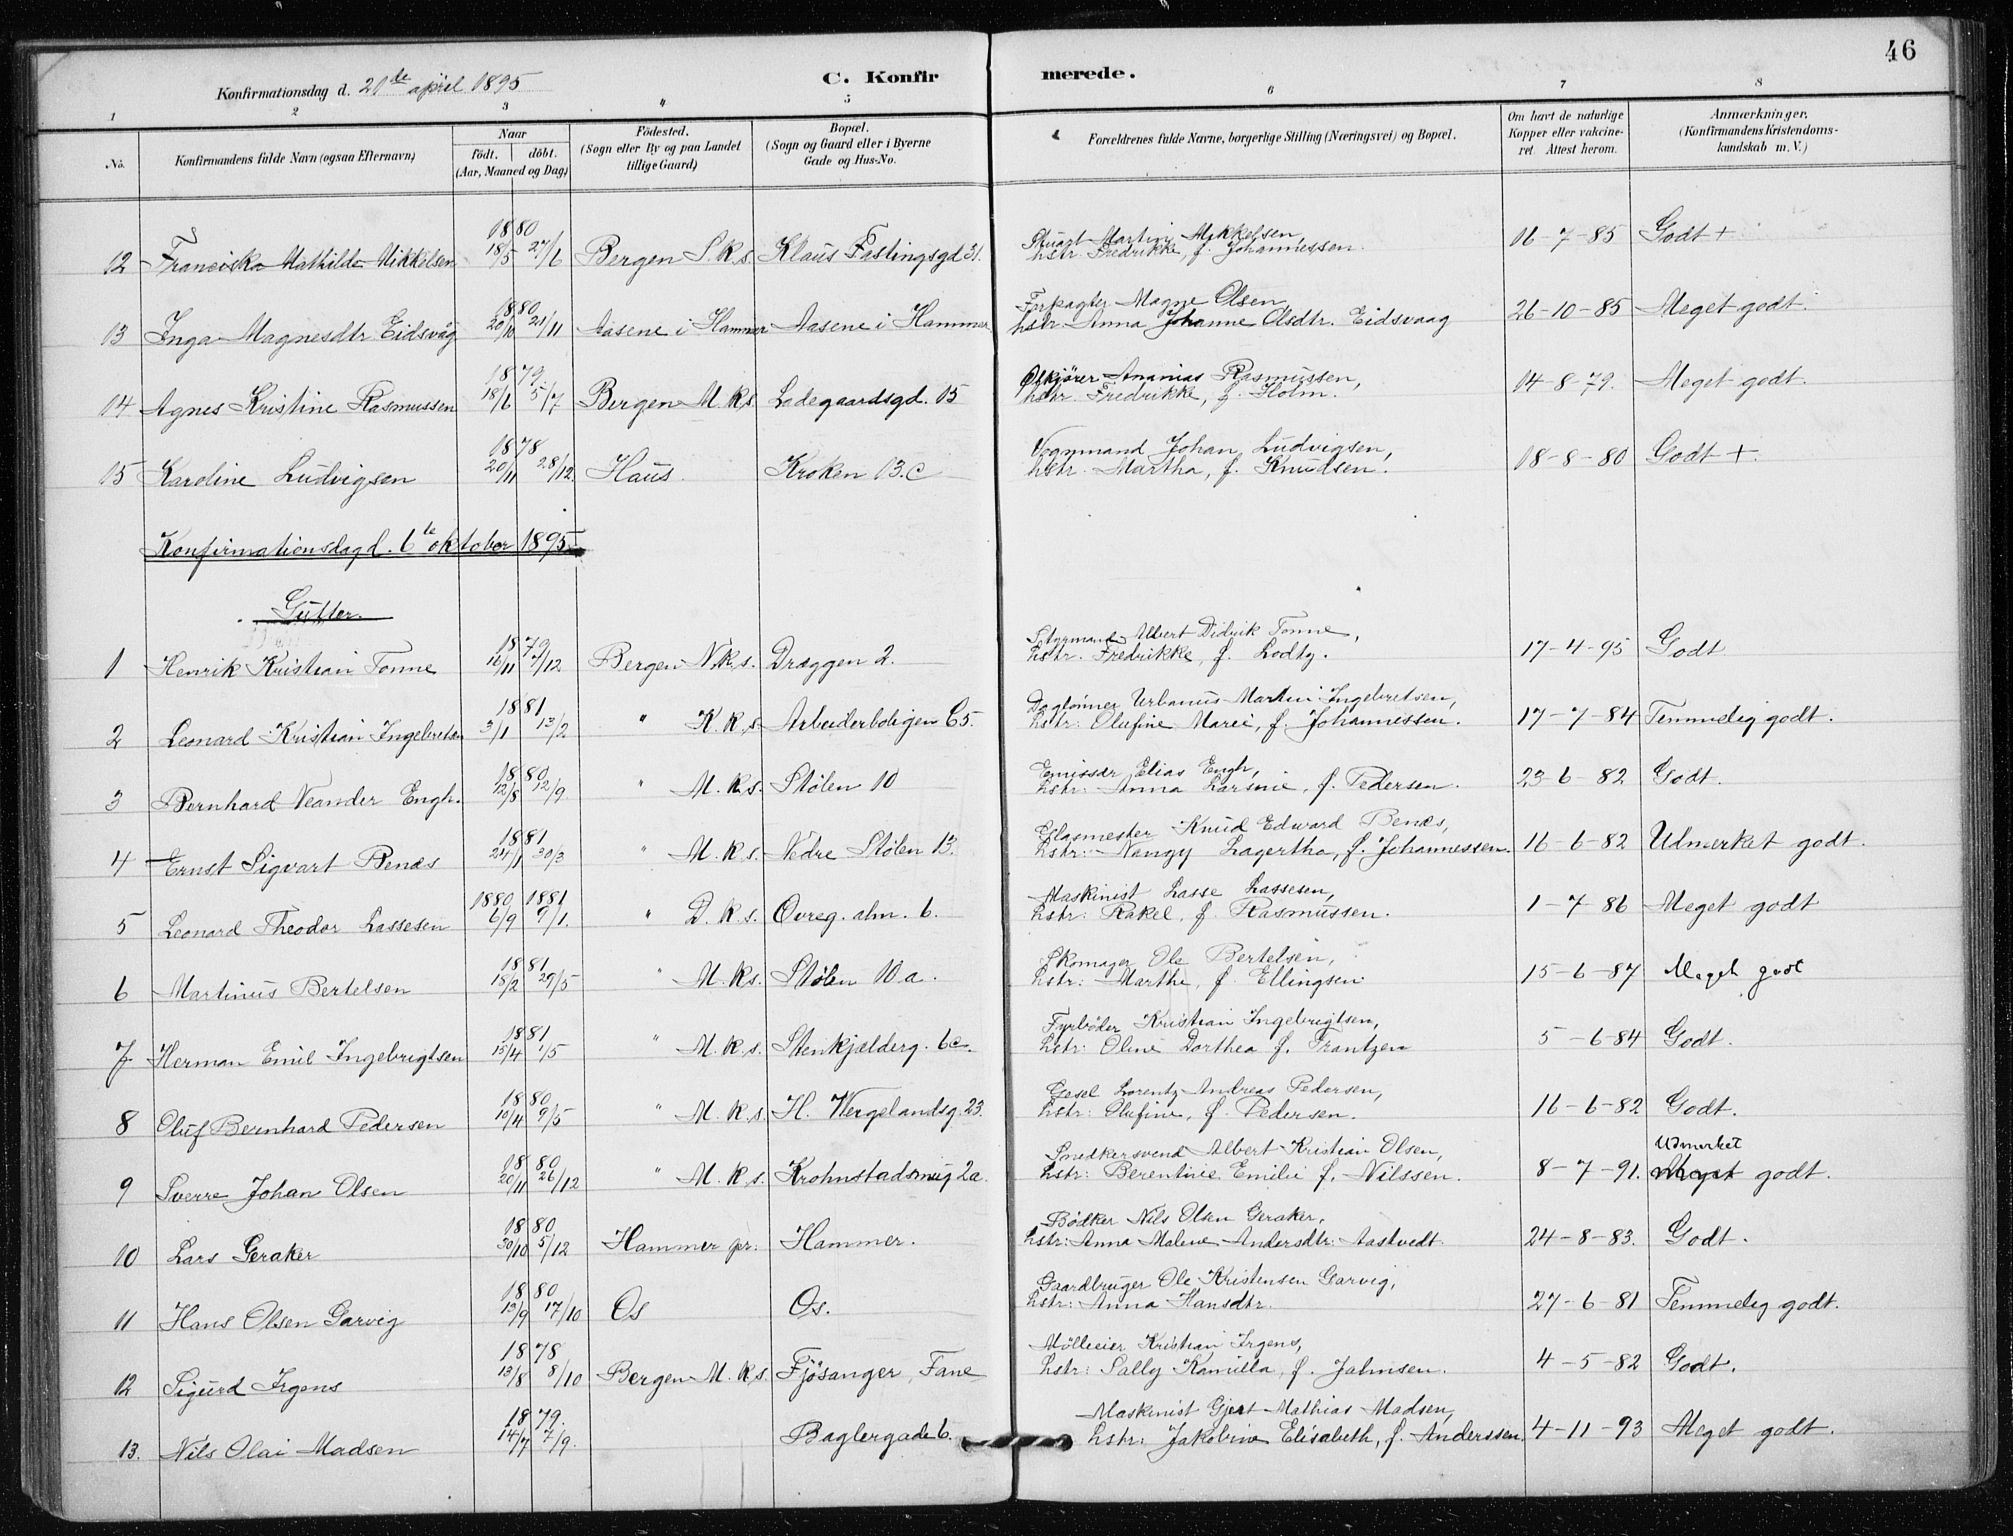 46
Konfirmationsdag d. 21de april 1895 C. Konfirmerede.
1 2 3 4 5 6 7 8
No. Konfirmandens fulde Navn (ogsaa Efternavn) Naar födt. döbt. (Aar, Maaned og Dag) Födested. (Sogn eller By og paa Landet tillige Gaard) Bopæl. (Sogn og Gaard eller i Byerne Gade og Hus-No. Forældrenes fulde Navne, borgerlige Stilling (Næringsvei) og Bopæl. Om havt de naturlige Kopper eller vakcineret. Attest herom. Anmærkninger. (Konfirmandens Kristendomskundskab m. V.)
1880 Martin Mikkelsen,
12 Franciska Mathilde Mikkelsen 18/5 27/6 Bergen S.k.s. Klaus Fastingsgd 31. hstr. Fredrikke, f. Johannessen. 16-7-85 Godt +
1880 Forpagter Magne Olsen,
13 Inga Magnesdtr. Eidsvåg 20/10 21/11 Aasene i Hammer Aasene i Hammer hstr. Anna Johanne Olsdtr. Eidsvaag 26-10-85 Meget godt.
1879 Ølkjører Ananias Rasmussen,
14 Agnes Kristine Rasmussen 18/6 5/7 Bergen M.k.s. Ladegaardsgd. 15 hstr. Fredrikke, f. Holm. 14-8-79. Meget godt.
1878 Vognmand Johan Ludvigsen,
15 Karoline Ludvigsen 20/11 28/12. Haus. Kroken 13.c hstr. Martha, f. Knudsen. 18-8-80 Godt +
Konfirmationsdag d. 6te oktober 1895.
Gutter.
1879 Styrmand Albert Didrik Tonne,
1 Henrik Kristian Tonne 16/11 7/12 Bergen N.k.s. Dræggen 2. hstr. Fredrikke, f. Lodtz. 17-4-95 Godt
1881 Daglønner Urbanus Martin Ingebretsen,
2 Leonard Kristian Ingebretsen 3/1 13/2 " K.k.s. Arbeiderboligen C5. hstr: Olufine Marie, f. Johannessen. 17-7-84 Temmelig godt.
1880 Emissær Elias Engh,
3 Bernhard Neander Engh. 12/8 12/9 " M.k.s. Stølen 10 hstr: Anna Larsine, f. Pedersen. 23-6-82 Godt.
1881 Glasmester Knud Edward Benæs,
4 Ernst Sigvart Benæs 24/1 30/3 " M.k.s. Nedre Stølen 13. hstr: Nangy Lagertha, f. Johannessen. 16-6-82 Udmerket godt.
1880 1881 Maskinist Lasse Lassesen,
5 Leonard Theodor Lassesen 6/9 9/1. " D.k.s. Øvreg. alm. 6. hstr: Rakel, f. Rasmussen. 1-7-86 Meget godt
1881 Skomager Ole Bertelsen,
6 Martinus Bertelsen 18/2 29/5 " M.ks. Stølen 10.a. hstr: Marthe, f. Ellingsen. 15-6-87 Meget godt
1881 Fyrbøder Kristian Ingebrigtsen,
7 Herman Emil Ingebrigtsen 15/4 1/5 " M.k.s. Stenkjælderg. 6c. hstr: Oline Dorthea f. Frantzen 5-6-84 Godt.
1880 Gesel Lorentz Andreas Pedersen,
8 Oluf Bernhard Pedersen 10/4 9/5 " M.k.s. H. Wergelandsg. 23. hstr: Olufine, f. Pedersen. 16-6-82 Godt.
1880 Snedkersvend Albert Kristian Olsen, Udmerket
9 Sverre Johan Olsen 20/11 26/12 " M.k.s. Krohnstadsmug 2a. hstr: Berentine Emilie f. Nilssen. 8-7-91. Meget godt.
1880 Bødker Nils Olsen Geraker,
10 Lars Geraker 30/10 5/12 Hammer gr: Hammer. hstr: Anna Malene Andersdtr. Aastvedt. 24-8-83. Godt.
1880 Gaardbruger Ole Kristensen Garvig,
11 Hans Olsen Garvig 13/9 17/10 Os Os. hstr: Anna Hansdtr. 27-6-81 Temmelig godt.
1878 Mølleeier Kristian Irgens,
12 Sigurd Irgens 13/8 8/10 Bergen M.k.s. Fjøsanger, Fane hstr: Sally Kamilla, f. Jahnsen. 4-5-82 Godt.
1879. Maskinist Gjert Mathias Madsen,
13. Nils Olai Madsen 14/7 7/9. Baglergade 6. hstr: Jakobine Elisabeth, f. Anderssen. 4-11-93 Meget godt.